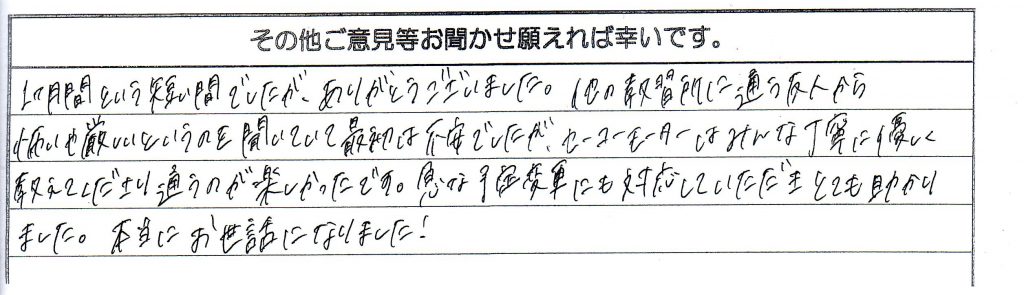 その他ご意見等お聞かせ願えれば幸いです。
1ヶ月間という短い間でしたが、ありがとうございました。他の教習所に通う友人から
怖いや厳しいというのを聞いていて最初は不安でしたが、セーコーモーターはみんな丁寧に優しく
教えてくださり通うのが楽しかったです。急な予定変更にも対応していただきとても助かり
ました。本当にお世話になりました!